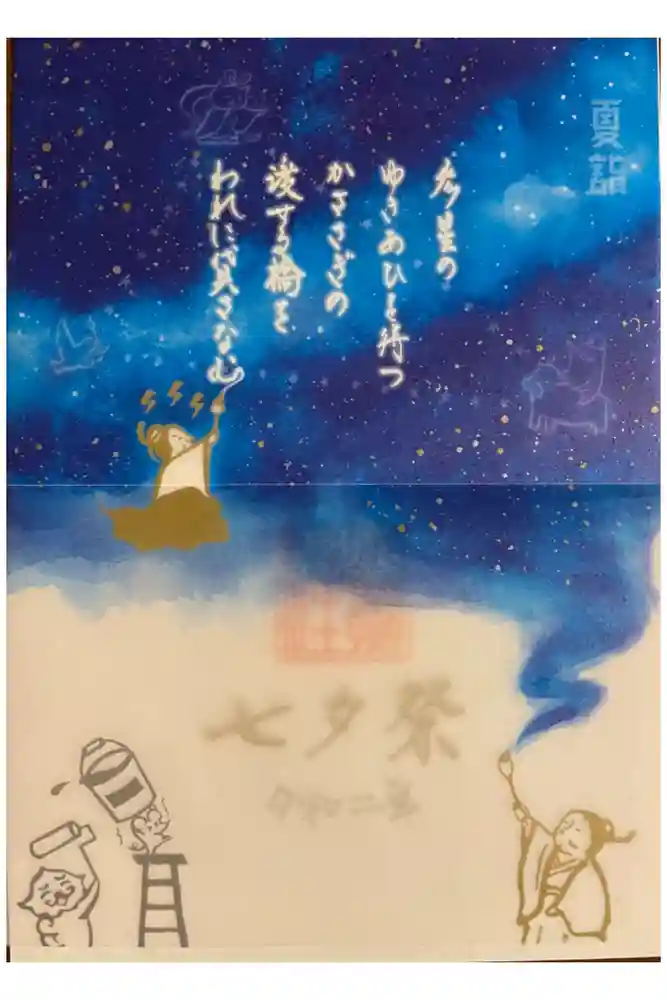 夏詣
彦星の
ゆきあひを待つ
かささぎの
渡せる橋を
われに貸さなむ
七夕祭
令和二年